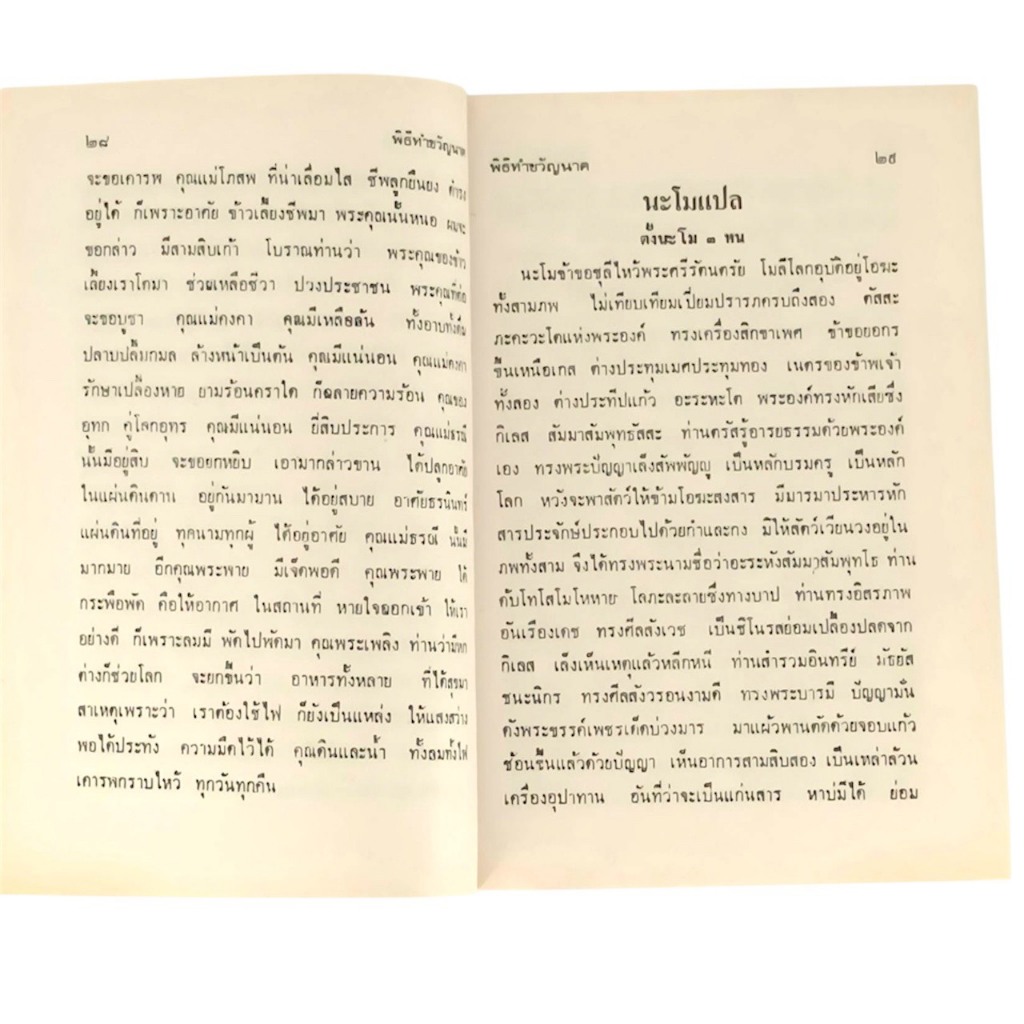 ๒๘ พิธีทำขวัญนาค
จะขอเคารพ คุณแม่โภสพ ที่น่าเลื่อมใส ชีพลูกยืนยง ดำรง
อยู่ได้ ก็เพราะอาศัย ข้าวเลี้ยงชีพมา พระคุณนั้นหนอ ผมจะ
ขอกล่าว มีสามสิบเก้า โบราณท่านว่า พระคุณของข้าว
เลี้ยงเราโตมา ช่วยเหลือชีวา ปวงประชาชน พระคุณที่ต่อ
จะขอบูชา คุณแม่คงคา คุณมีเหลือล้น ทั้งอาบทั้งดื่ม
ปลาบปลื้มกมล ล้างหน้าเป็นต้น คุณมีแน่นอน คุณแม่คงคา
รักษาเปลื้องหาย ยามร้อนคราใด ก็ฉลายความร้อน คุณของ
อุทก คู่โลกอุทร คุณมีแน่นอน ยี่สิบประการ คุณแม่ธรณี
นั้นมีอยู่สิบ จะขอยกหยิบ เอามากล่าวขาน ได้ปลูกอาศัย
ในแผ่นดินดาน อยู่กันมามาน ได้อยู่สบาย อาศัยธรนินทร์
แผ่นดินที่อยู่ ทุคนามทุกผู้ ได้อยู่อาศัย คุณแม่ธรณี นั้นมี
มากมาย อีกคุณพระพาย มีเจ็ดพอดี คุณพระพาย ได้
กระพือพัด คือให้อากาศ ในสถานที่ หายใจออกเข้า ให้เรา
อย่างดี ก็เพราะลมมี พัดไปพัดมา คุณพระเพลิง ท่านว่ามีหก
ต่างก็ช่วยโลก จะยกขึ้นว่า อาหารทั้งหลาย ที่ได้สุขมา
สาเหตุเพราะว่า เราต้องใช้ไฟ ก็ยังเป็นแหล่ง ให้แสงสว่าง
พอได้ประทัง ความมืดไว้ได้ คุณดินและน้ำ ทั้งลมทั้งไฟ
เคารพกราบไหว้ ทุกวันทุกคืน
พิธีทำขวัญนาค ๒๙
นะโมแปล
ตั้งนะโม ๓ หน
นะโมข้าขอชุลีไหว้พระศรีรัตนตรัย โมลีโลกอุบัติอยู่โอฆะ
ทั้งสามภพ ไม่เทียบเทียมเปี่ยมปรารภครบถึงสอง ตัสสะ
ภะคะวะโตแห่งพระองค์ ทรงเครื่องสิกขาเพศ ข้าขอยอกร
ขึ้นเหนือเกส ต่างประทุมเมศประทุมทอง เนตรของข้าพเจ้า
ทั้งสอง ต่างประทีปแก้ว อะระหะโต พระองค์ทรงหักเสียซึ่ง
กิเลส สัมมาสัมพุทธัสสะ ท่านตรัสรู้อารยธรรมด้วยพระองค์
เอง ทรงพระปัญญาเล็งสัพพัญญู เป็นหลักบรมครู เป็นหลัก
โลก หวังจะพาสัตว์ให้ข้ามโอฆะสงสาร มีมารมาประหารหัก
สารประจักษ์ประกอบไปด้วยกำและกง มิให้สัตว์เวียนวงอยู่ใน
ภพทั้งสาม จึงได้ทรงพระนามชื่อว่าอะระหังสัมมาสัมพุทโธ ท่าน
ดับโทโสโมโหหาย โลภะละลายซึ่งทางบาป ท่านทรงอิสรภาพ
อันเรืองเดช ทรงศีลสังเวช เป็นชิโนรสย่อมเปลื้องปลดจาก
กิเลส เล็งเห็นเหตุแล้วหลีกหนี ท่านสำรวมอินทรีย์ มัธยัส
ชนะนิกร ทรงศีลสังวรอนงามดี ทรงพระบารมี ปัญญามั่น
ดังพระขรรค์เพชรเด็ดบ่วงมาร มาแผ้วพานตัดด้วยจอบแก้ว
ช้อนขึ้นแล้วด้วยปัญญา เห็นอาการสามสิบสอง เป็นเหล่าล้วน
เครื่องอุปาทาน อันที่ว่าจะเป็นแก่นสาร หาบ่มีได้ ย่อม